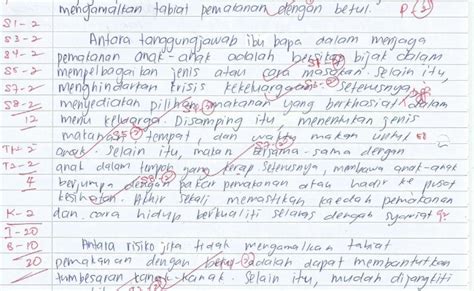 mengamalkan tabiat pemakanan dengan betul. P2
S1-2
S3-2 Antara tanggungjawab ibu bapa dalam menjaga
S4-2 pemakanan anak-anak adalah bersikap bijak dalam
S5-2 mempelbagaikan jenis atau cara masakan. Selain itu,
S7-2 menghindarkan krisis kekeluargaan. Seterusnya,
S8-2 menyediakan pilihan makanan yang berkhasiat dalam
12 menu keluarga. Disamping itu, menentukan jenis
makanan, tempat, dan waktu makan untuk
T1-2 anak. Selain itu, makan bersama-sama dengan
T2-2 anak dalam tempoh yang kerap seterusnya, membawa anak-anak
4 berjumpa dengan pakar pemakanan atau hadir ke pusat
kesihatan. Akhir sekali memastikan kaedah pemakanan
K-2 dan cara hidup berkualiti selaras dengan syariat
I-20
B-10 Antara risiko jika tidak mengamalkan tabiat
20 pemakanan dengan betul adalah dapat membantutkan
tumbesaran kanak-kanak. Selain itu, mudah dijangkiti